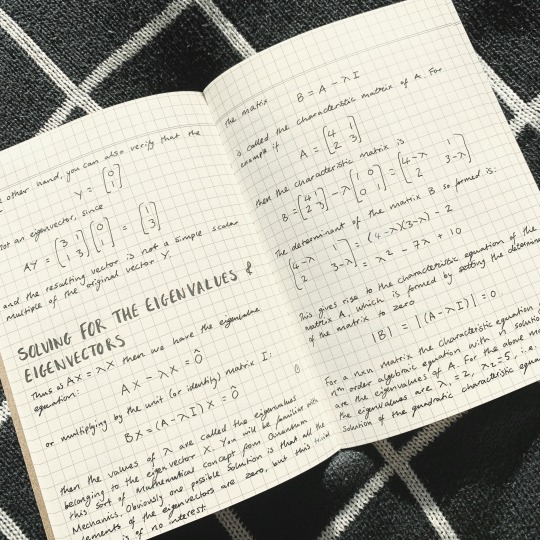 other hand, you can also verify that the
Y = [0 1]
not an eigenvector, since
AY = [3 1 1 3] [0 1] = [1 3]
and the resulting vector is not a simple scalar
multiple of the original vector Y.
SOLVING FOR THE EIGENVALUES &
EIGENVECTORS
Thus as AX = λX then we have the eigenvalue
equation:
AX - λX = Ô
or multiplying by the unit (or identity) matrix I:
BX = (A - λI) X = Ô
then the values of λ are called the eigenvalues
belonging to the eigenvector X. You will be familiar with
this sort of Mathematical concept from Quantum
Mechanics. Obviously one possible solution is that all the
elements of the eigenvectors are zero, but this trivial
is of no interest.
the matrix
B = A - λI
is called the characteristic matrix of A. For
example if
A = [4 1 2 3]
then the characteristic matrix is
B = [4 1 2 3] - λ [1 0 0 1] = [4-λ 1 2 3-λ]
The determinant of the matrix B so formed is:
[4-λ 1 2 3-λ] = (4-λ)(3-λ) - 2
= λ² - 7λ + 10
This gives rise to the characteristic equation of the
matrix A, which is formed by setting the determinant
of the matrix to zero
|B| = |(A - λI)| = 0
For a nxn matrix the characteristic equation
nth order algebraic equation with n solutions
are the eigenvalues of A. For the above
the eigenvalues are λ₁ = 2, λ₂ = 5, i.e.
solution of the quadratic characteristic equation